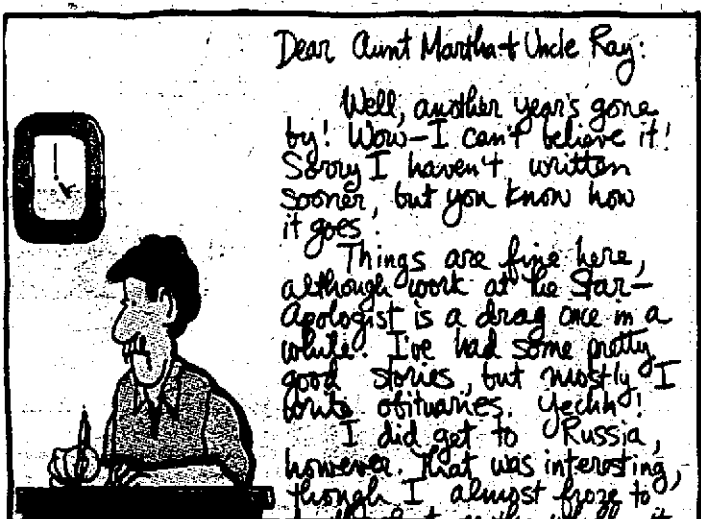 Dear Aunt Martha + Uncle Ray:
Well, another year's gone
by! Wow—I can't believe it!
Sorry I haven't written
sooner, but you know how
it goes.
Things are fine here,
although work at the Star-
Apologist is a drag once in a
while. I've had some pretty
good stories, but mostly I
write obituaries. Yechh!
I did get to Russia,
however. That was interesting,
though I almost froze to